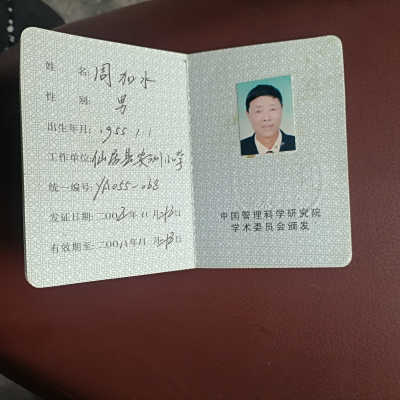 姓 名: 周加水
性 别: 男
出生年月: 1955.1.1
工作单位: 仙居县安洲小学
统一编号: YA055-068
发证日期: 二00三年11月13日
有效期至: 二00八年11月13日
中国管理科学研究院
学术委员会颁发